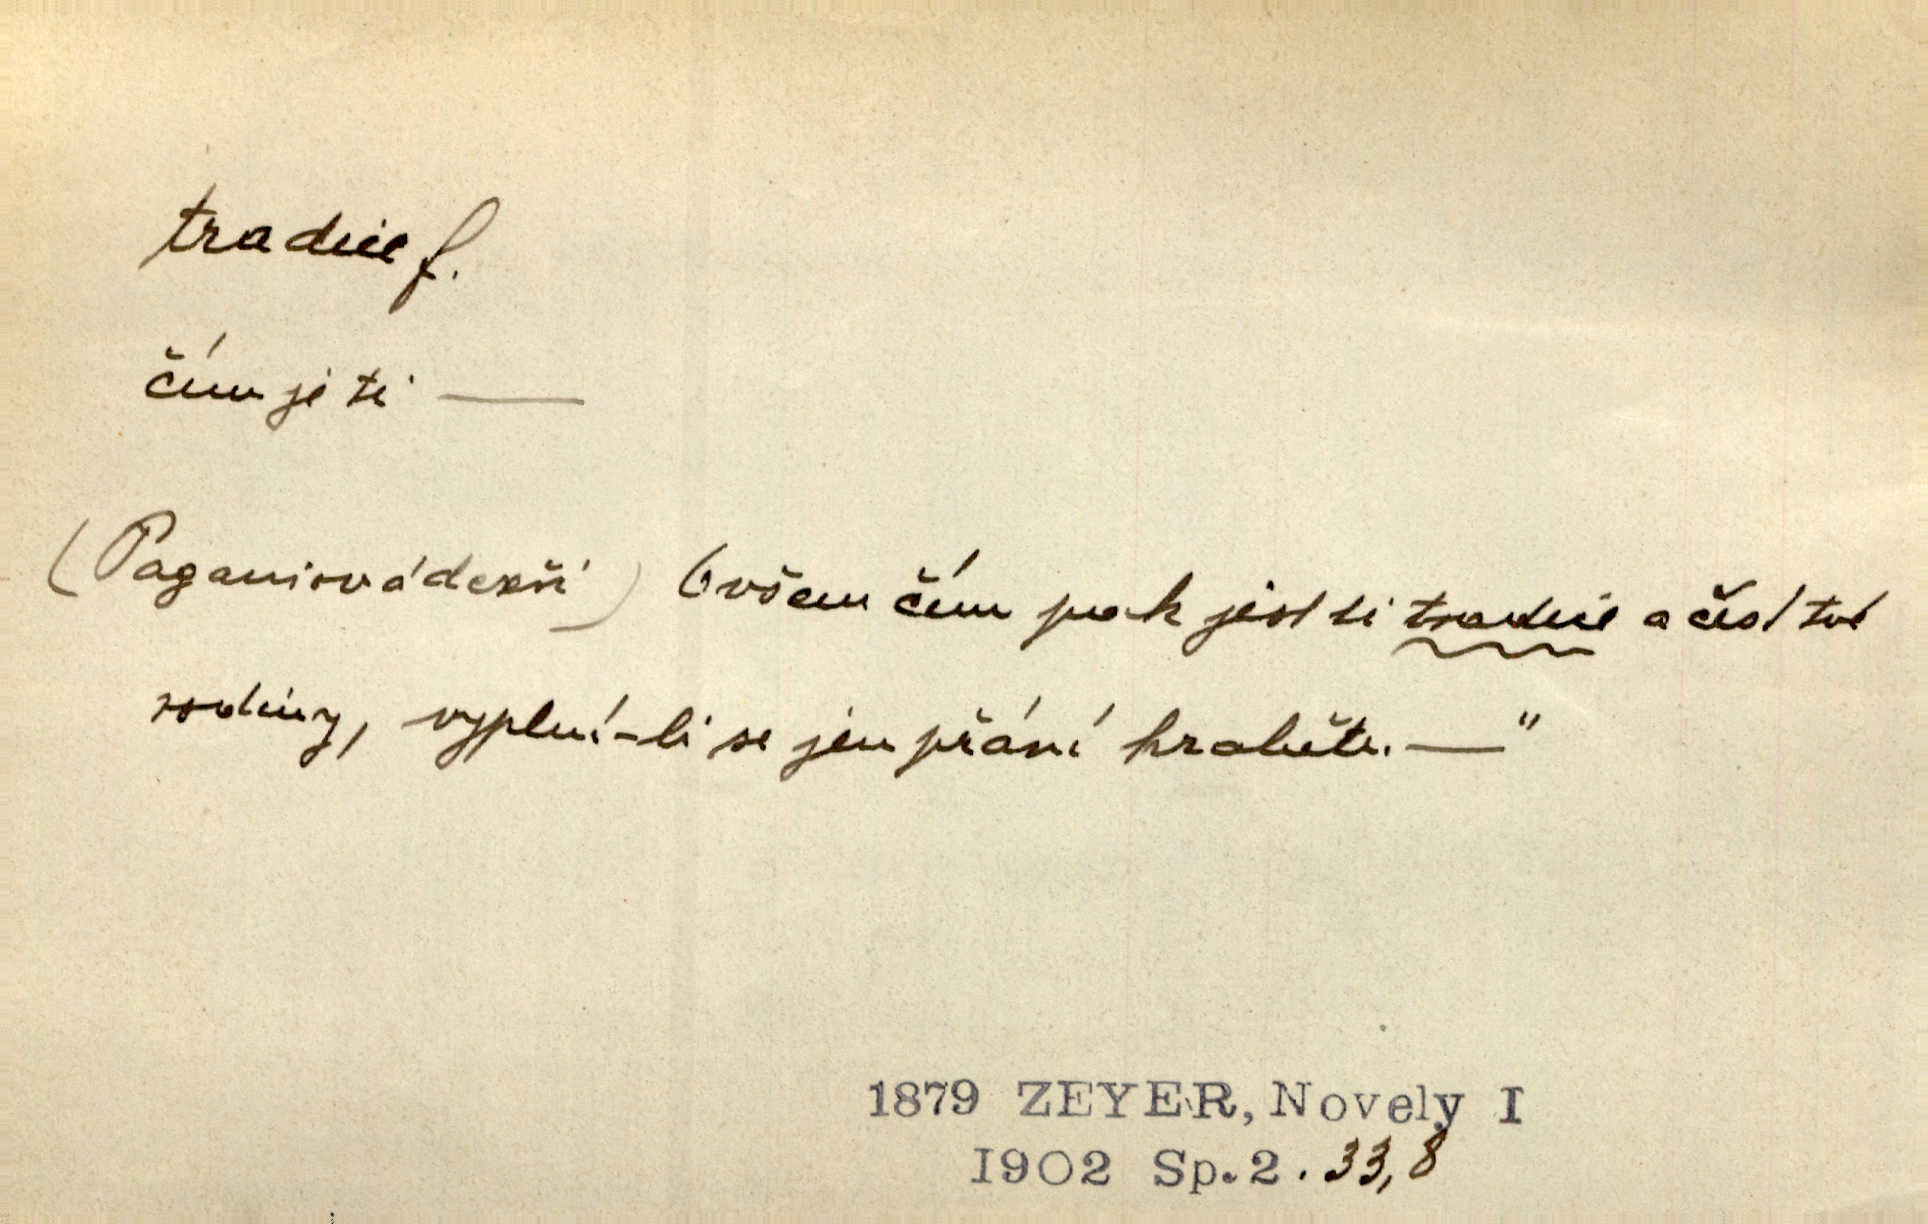 tradice f.
čím je ti —
(Paganiová dceři) Ovšem čím pak jest ti tradice a čest tvé
rodiny, vyplní-li se jen přání hraběte. —"
1879 ZEYER, Novely I
1902 Sp.2.33,8